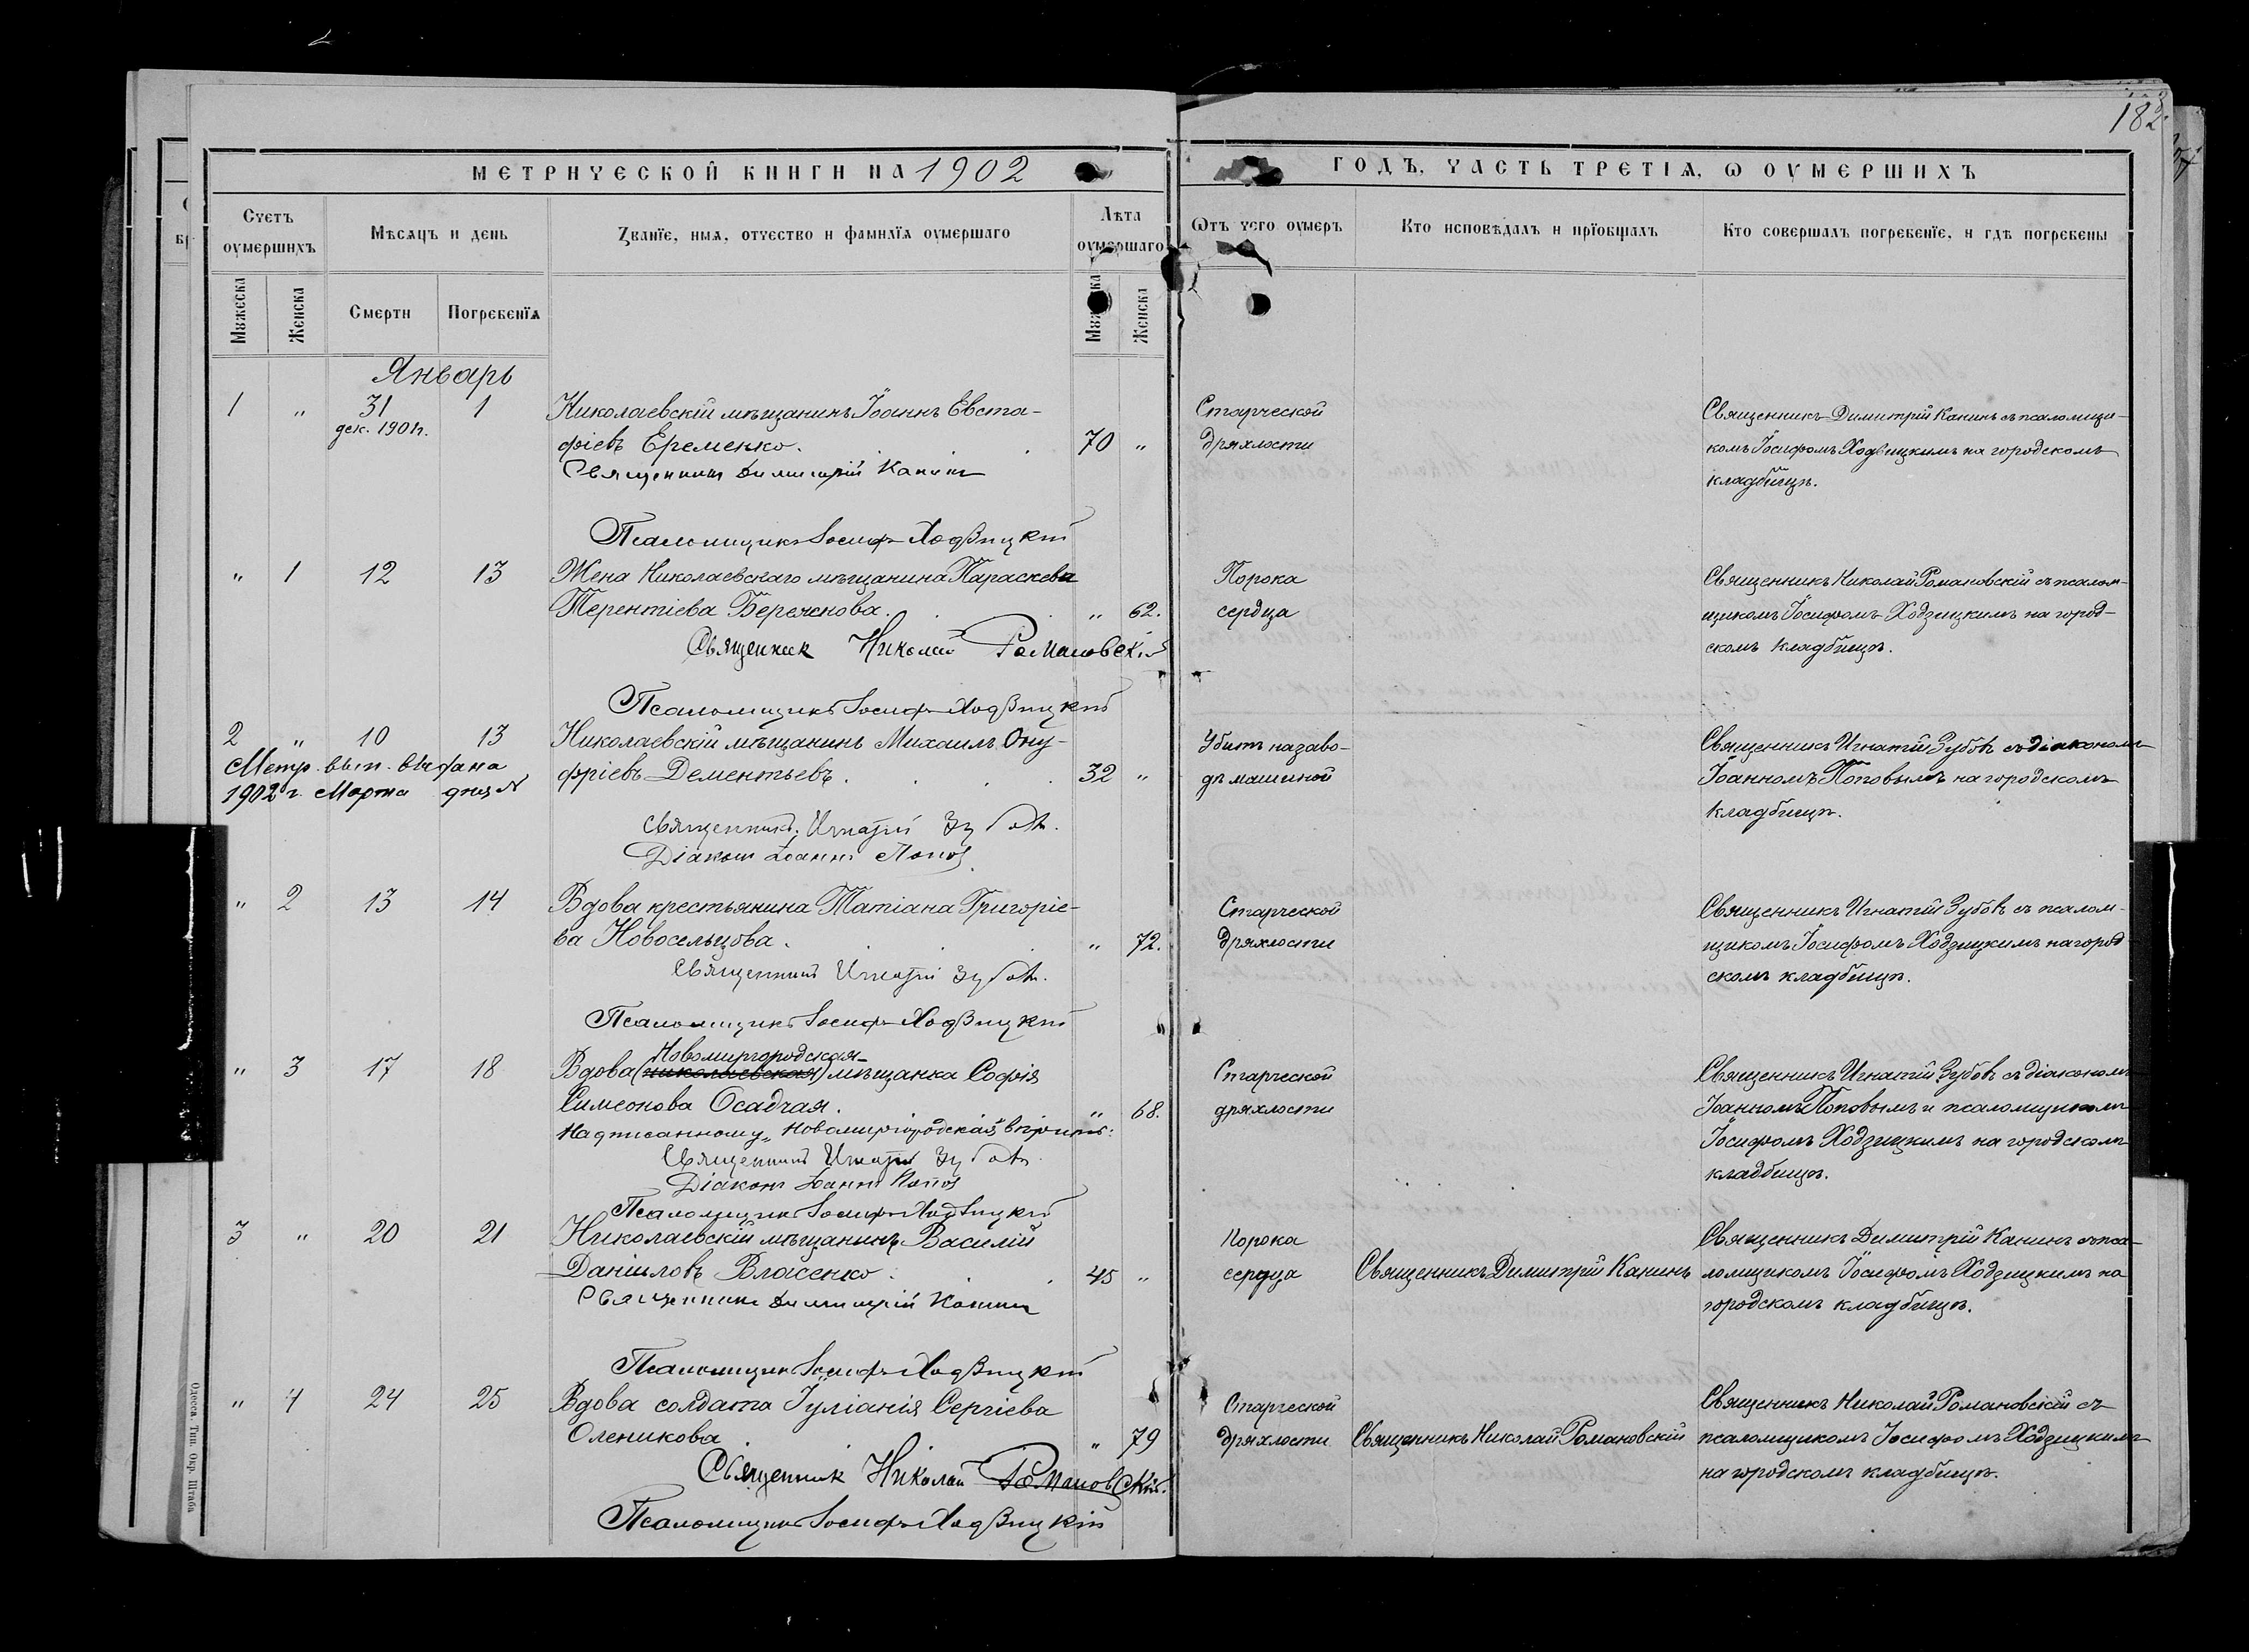 182
МЕТРИЧЕСКОЙ КНИГИ НА 1902
ГОДЪ, ЧАСТЬ ТРЕТІѦ, Ѡ ОУМЕРШИХЪ
Счетъ оумершихъ
Мѣсяцъ и день
Званїе, имѧ, отчество и фамилїѧ оумершаго
Лѣта оумершаго
Ѿтъ чего оумеръ
Кто исповѣдалъ и прїобщалъ
Кто совершалъ погребенїе, и гдѣ погребены
Мꙋжеска
Женска
Смерти
Погребенїѧ
Женска
Январь
1 " 31 1 Николаевскій мѣщанинъ Іоаннъ Евста-
дек. 1901г.
фіевъ Еременко. 70 "
Священникъ Димитрій Канинъ
Псаломщикъ Іосифъ Ходзицкій
Старческой
дряхлости
Священникъ Димитрій Канинъ съ псаломщи-
комъ Іосифомъ Ходзицкимъ на городскомъ
кладбищѣ.
" 1 12 13 Жена Николаевскаго мѣщанина Параскева
Терентіева Береченова. " 62.
Священник Николай Романовскій
Псаломщикъ Іосифъ Ходзицкій
Порока
сердца
Священникъ Николай Романовскій съ псалом-
щикомъ Іосифомъ Ходзицкимъ на город-
скомъ кладбищѣ.
2 " 10 13 Николаевскій мѣщанинъ Михаилъ Ону-
фріевъ Дементьевъ. 32 "
Метр. вып. выдана
1902 г. Марта
Священникъ Игнатій Зубовъ.
Діаконъ Іоаннъ Поповъ
Убитъ на заво-
дѣ машиной
Священникъ Игнатій Зубовъ съ діакономъ
Іоанномъ Поповымъ на городскомъ
кладбищѣ.
" 2 13 14 Вдова крестьянина Татіана Григоріе-
ва Новосельцова. " 72.
Священникъ Игнатій Зубовъ.
Псаломщикъ Іосифъ Ходзицкій
Старческой
дряхлости
Священникъ Игнатій Зубовъ съ псалом-
щикомъ Іосифомъ Ходзицкимъ на город
скомъ кладбищѣ.
Новомиргородская
" 3 17 18 Вдова (николаевская) мѣщанка Софія
Симеонова Осадчая. " 68.
Надписанному "Новомиргородская" вѣрить:
Священникъ Игнатій Зубовъ
Діаконъ Іоаннъ Поповъ
Псаломщикъ Іосифъ Ходзицкій
Старческой
дряхлости
Священникъ Игнатій Зубовъ съ діакономъ
Іоанномъ Поповымъ и псаломщикомъ
Іосифомъ Ходзицкимъ на городскомъ
кладбищѣ.
3 " 20 21 Николаевскій мѣщанинъ Василій
Даниловъ Власенко. 45 "
Священникъ Димитрій Канинъ
Псаломщикъ Іосифъ Ходзицкій
Порока
сердца
Священникъ Димитрій Канинъ
Священникъ Димитрій Канинъ съ пса-
ломщикомъ Іосифомъ Ходзицкимъ на
городскомъ кладбищѣ.
" 4 24 25 Вдова солдата Іуліанія Сергіева
Оленикова " 79
Священник Николай Романовскій.
Псаломщикъ Іосифъ Ходзицкій
Старческой
дряхлости
Священникъ Николай Романовскій
Священникъ Николай Романовскій съ
псаломщикомъ Іосифомъ Ходзицкимъ
на городскомъ кладбищѣ.
Одесса. Тип. Окр. Штаба